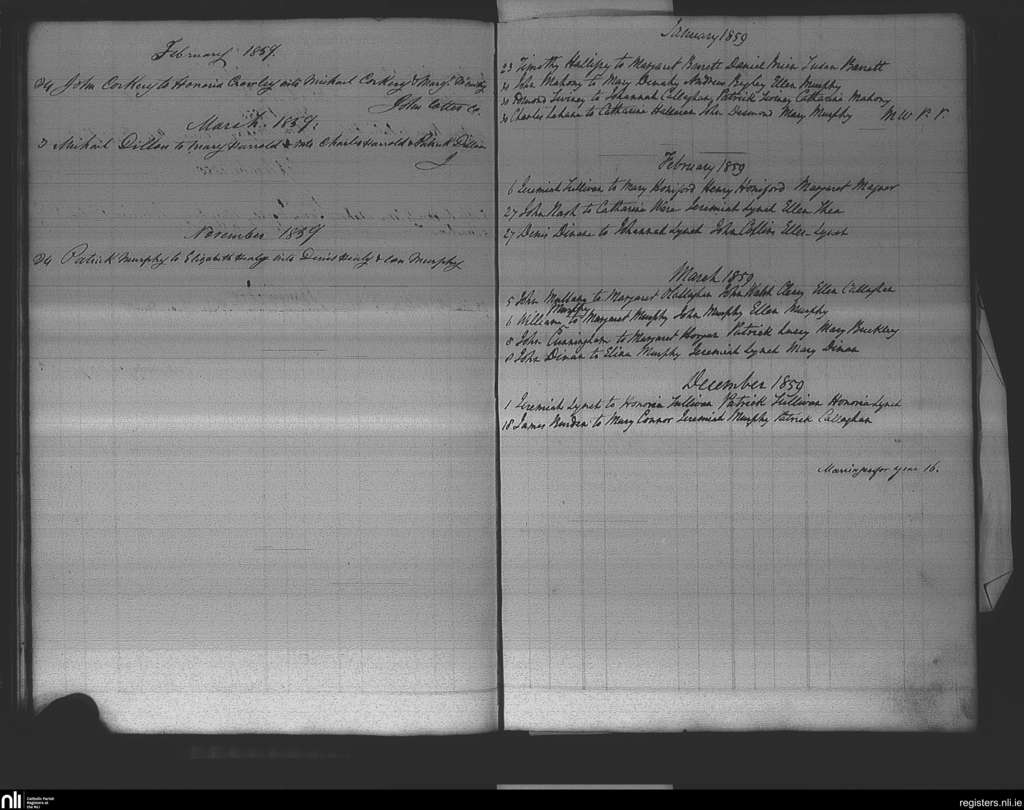 February 1859.
24 John Corkery to Honoria Crowley wits Michael Corkery &
John Cotter Cc.
March 1859.
Michael Dillon to Mary Harrold wits Charles Harrold & Patrick Dillon
November 1859
24 Patrick Murphy to Elizabeth Healy wits Denis Healy & Murphy
January 1859
23 Timothy to Margaret Barrett Daniel Susan Barrett
John Mahony to Mary Andrew Begley Ellen Murphy
30 Edmond to Johannah Callaghan Patrick Catharine Mahony
30 Charles to Catharine John Desmond Mary Murphy M W P. P.
February 1859
6 Jeremiah Sullivan to Mary Honiford Henry Honiford Margaret
27 John Nash to Catharine Jeremiah Lynch Ellen Shea
27 Denis Dinane to Johannah Lynch John Collins Ellen Lynch
March 1859
5 John to Margaret John Walsh Ellen Callaghan
Murphy
6 William to Margaret Murphy John Murphy Ellen Murphy
8 John Cunningham to Margaret Horgan Patrick Mary Buckley
8 John Dinan to Eliza Murphy Jeremiah Lynch Mary Dinan
December 1859
1 Jeremiah Lynch to Honoria Sullivan Patrick Sullivan Honoria Lynch
18 James to Mary Connor Jeremiah Murphy Patrick Callaghan
Marriages for year 16.
nli
Catholic Parish
Registers at
the NLI
registers.nli.ie